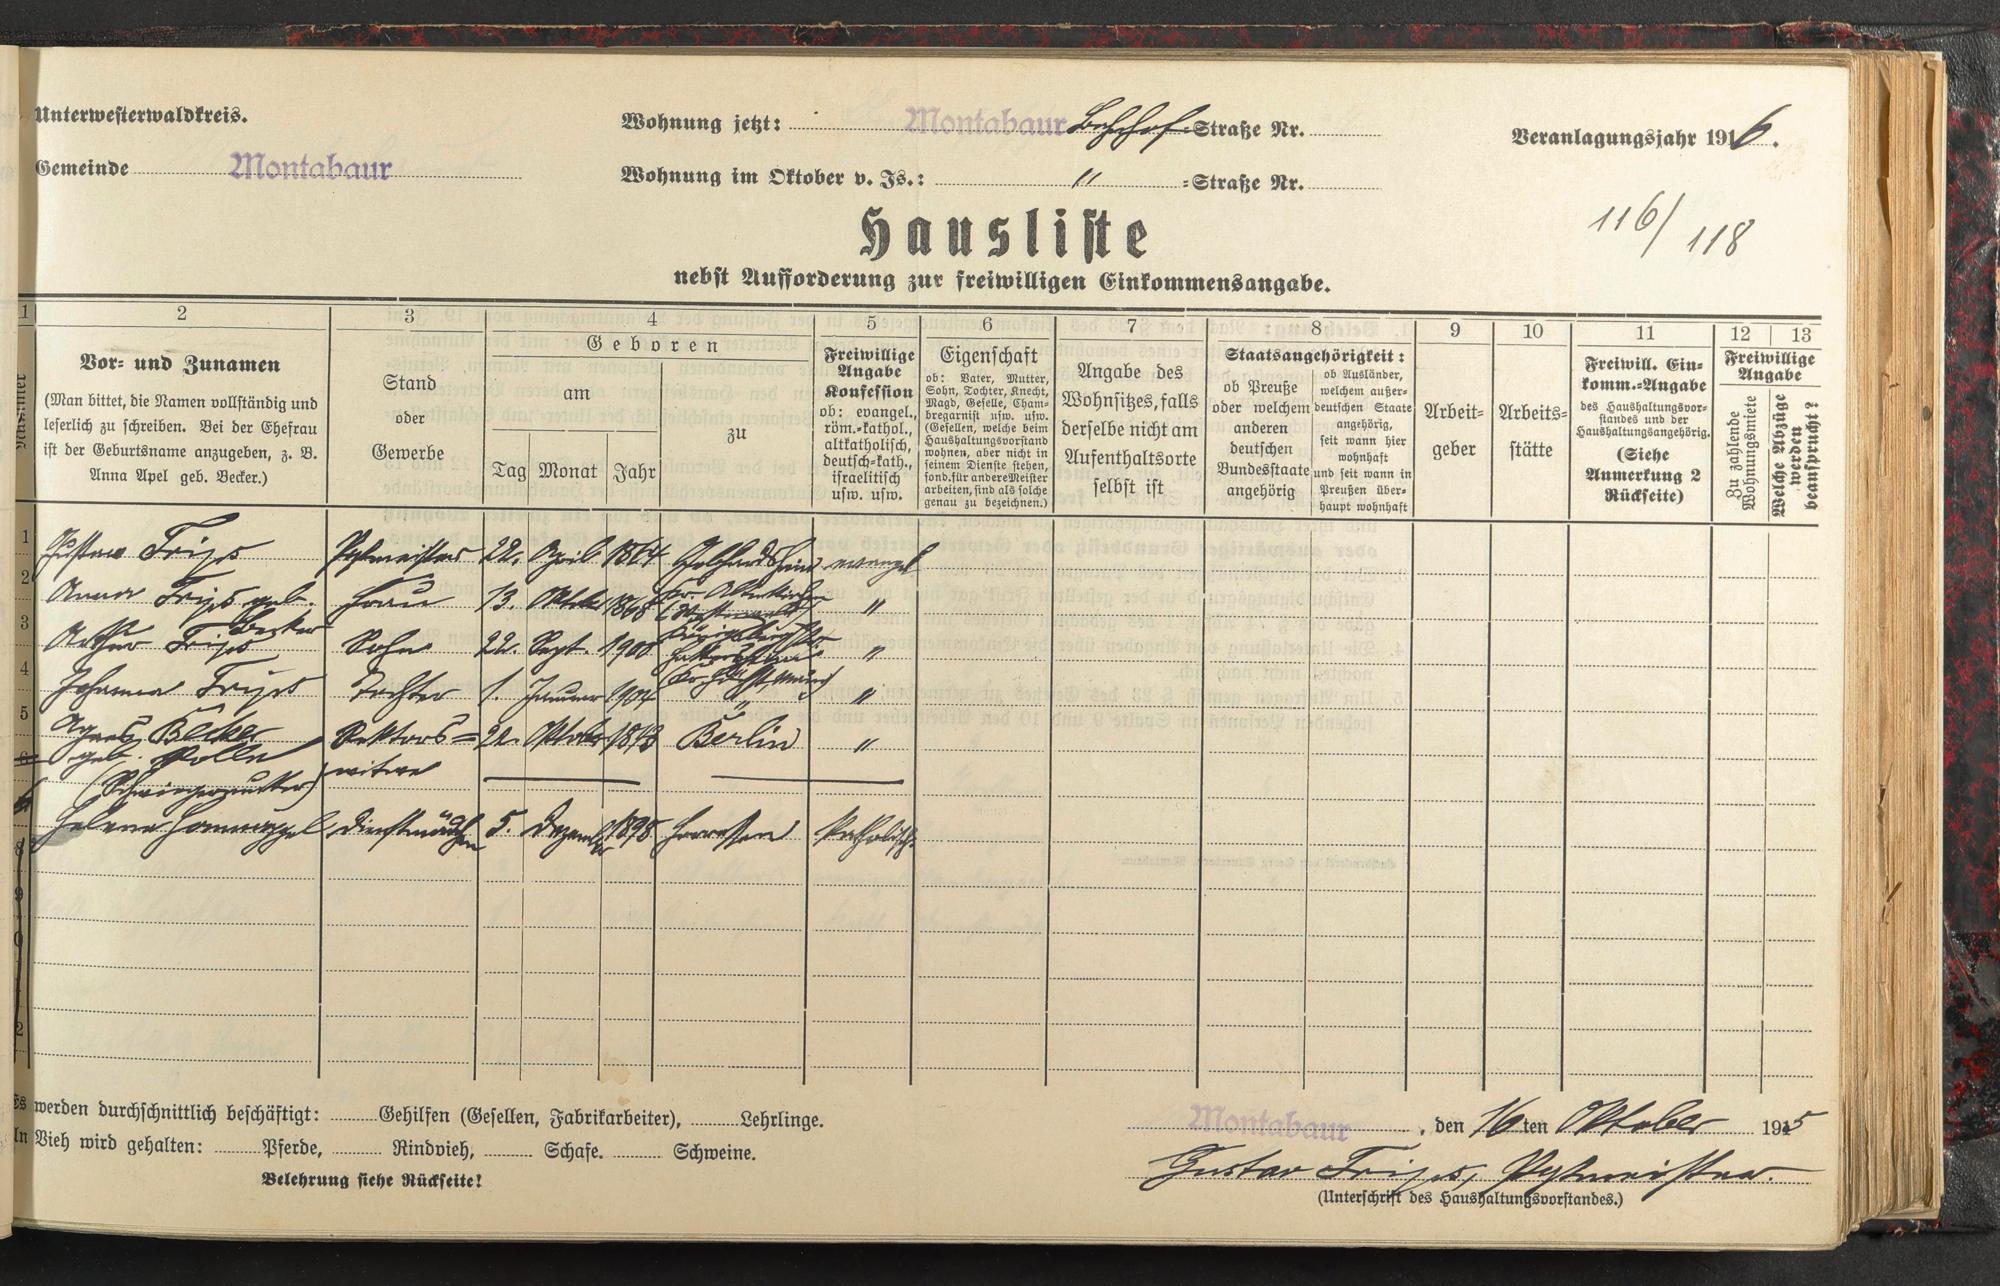 Unterwesterwaldkreis.
Gemeinde Montabaur
Wohnung jetzt: Montabaur Bahnhof-Straße Nr.
Wohnung im Oktober v. Js.: " -Straße Nr.
Veranlagungsjahr 1916.
116/118
Hausliste
nebst Aufforderung zur freiwilligen Einkommensangabe.
1 2 3 4 5 6 7 8 9 10 11 12 13
Nummer
Vor- und Zunamen
(Man bittet, die Namen vollständig und
leserlich zu schreiben. Bei der Ehefrau
ist der Geburtsname anzugeben, z. B.
Anna Apel geb. Becker.)
Stand
oder
Gewerbe
Geboren
am
Tag Monat Jahr
zu
Freiwillige
Angabe
Konfession
ob: evangel.,
röm.-kathol.,
altkatholisch,
deutsch-kath.,
israelitisch
usw. usw.
Eigenschaft
ob: Vater, Mutter,
Sohn, Tochter, Knecht,
Magd, Geselle, Cham-
bregarnist usw. usw.
(Gesellen, welche beim
Haushaltungsvorstand
wohnen, aber nicht in
seinem Dienste stehen,
sond. für andere Meister
arbeiten, sind als solche
genau zu bezeichnen.)
Angabe des
Wohnsitzes, falls
derselbe nicht am
Aufenthaltsorte
selbst ist
Staatsangehörigkeit:
ob Preuße
oder welchem
anderen
deutschen
Bundesstaate
angehörig
ob Ausländer,
welchem außer-
deutschen Staate
angehörig,
seit wann hier
wohnhaft
und seit wann in
Preußen über-
haupt wohnhaft
Arbeit-
geber
Arbeits-
stätte
Freiwill. Ein-
komm.-Angabe
des Haushaltungsvor-
standes und der
Haushaltungsangehörig.
(Siehe
Anmerkung 2
Rückseite)
Freiwillige
Angabe
Zu zahlende
Wohnungsmiete
Welche Abzüge
werden
beansprucht?
1 Gustav Trips Postmeister 22. April 1864 Gebhardshain evangel
2 Anna Trips geb. Becker Frau 13. Oktob 1868 Kr. Altenkirchen (Westerwald) "
3 Arthur Trips Sohn 22. Sept. 1900 "
4 Johanna Trips Tochter 1. Januar 1904 " "
5 Agnes Becker Rektors= 22. Oktober 1843 Berlin "
geb. Nolle witwe
(Schwiegermutter)
Helena Dienstmädchen 5. Dezember 1898 Horressen katholisch
8
9
0
2
Es werden durchschnittlich beschäftigt: Gehilfen (Gesellen, Fabrikarbeiter), Lehrlinge.
An Vieh wird gehalten: Pferde, Rindvieh, Schafe. Schweine.
Belehrung siehe Rückseite!
Montabaur, den 16ten Oktober 1915
Gustav Trips, Postmeister.
(Unterschrift des Haushaltungsvorstandes.)